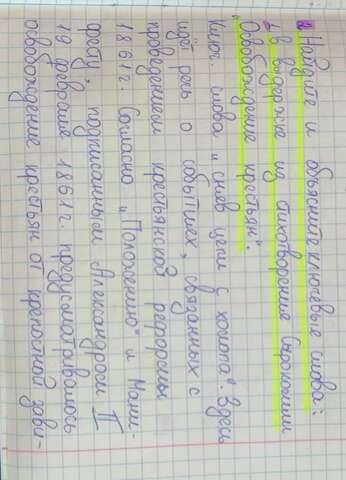 2. Найдите и объясните ключевые слова:
в выдержке из стихотворения Сырокомли
„Освобождение крестьян".
Ключ. слова „и снёв цепи с холопа". Здесь
идёт речь о событиях, связанных с
проведением крестьянской реформы
1861г. Согласно „Положению" и Мани-
фесту, подписанным Александром II
19 февраля 1861г. предусматривалось
освобождение крестьян от крепостной зави-